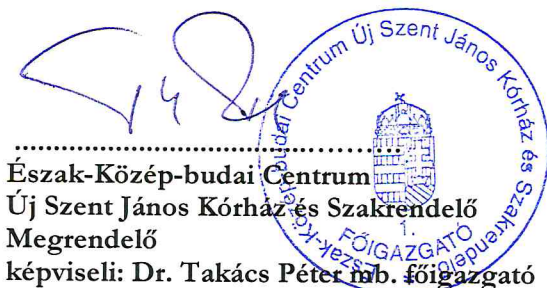 Észak-Közép-budai Centrum
Új Szent János Kórház és Szakrendelő
Megrendelő
képviseli: Dr. Takács Péter mb. főigazgató
Észak-Közép-budai Centrum Új Szent János Kórház és Szakrendelő
1.
FŐIGAZGATÓ